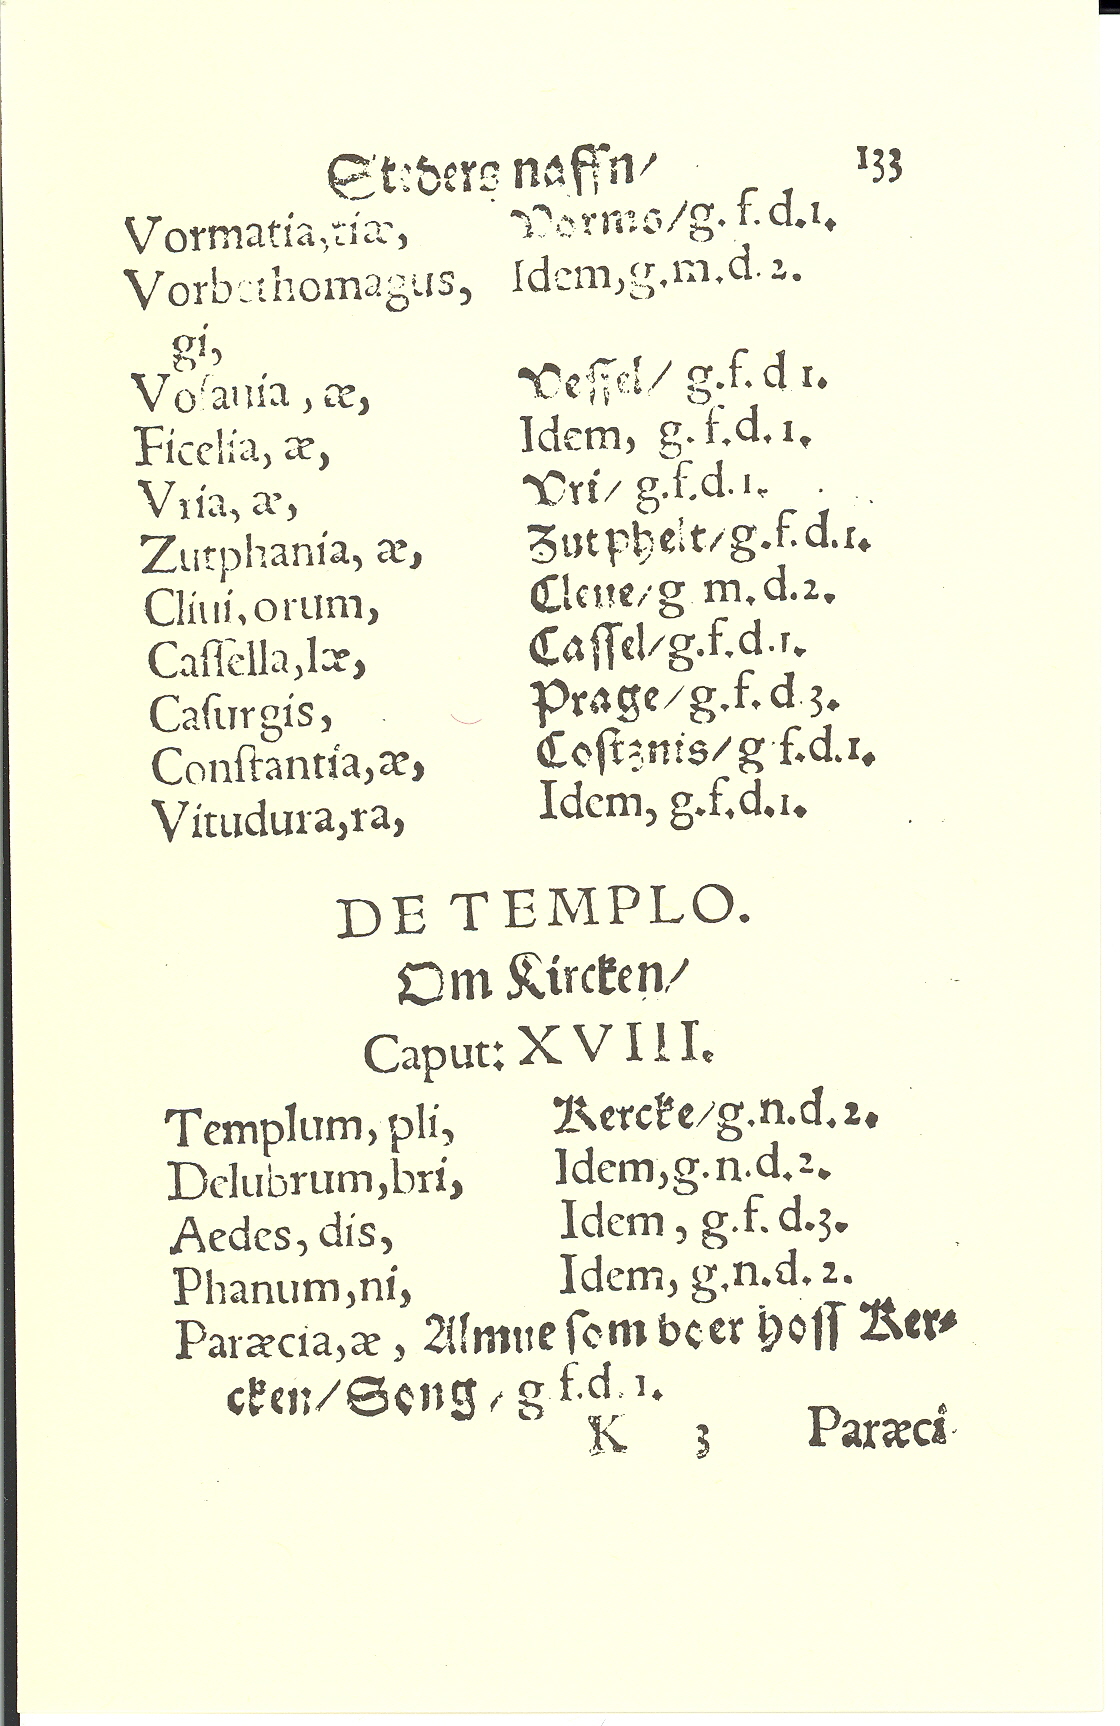 Steders naffn/ 133
Vormatia,tiæ, Vorms/g. f. d.1.
Vorbethomagus, Idem,g.m.d.2.
gi,
Vosauia , æ, Vessel/ g.f. d 1.
Ficelia, æ, Idem, g. f.d.1.
Vria, æ, Vri/ g.f.d.1.
Zutphania, æ, Zutphelt/g.f.d.1.
Cliui,orum, Cleue/g m.d.2.
Caſſella,læ, Caſſel/g.f.d.1.
Caſurgis, Prage/g.f.d.3.
Conſtantia,æ, Coſtznis/g f.d.1.
Vitudura,ra, Idem, g.f.d.1.
DE TEMPLO.
Om Kircken/
Caput: XVIII.
Templum, pli, Kercke/g.n.d.2.
Delubrum,bri, Idem,g.n.d.2.
Aedes, dis, Idem , g.f. d.3.
Phanum,ni, Idem, g.n.d.2.
Paræcia,æ , Almue ſom boer hoſſ Ker⸗
cken/Song/g f.d.1.
K 3 Paræci